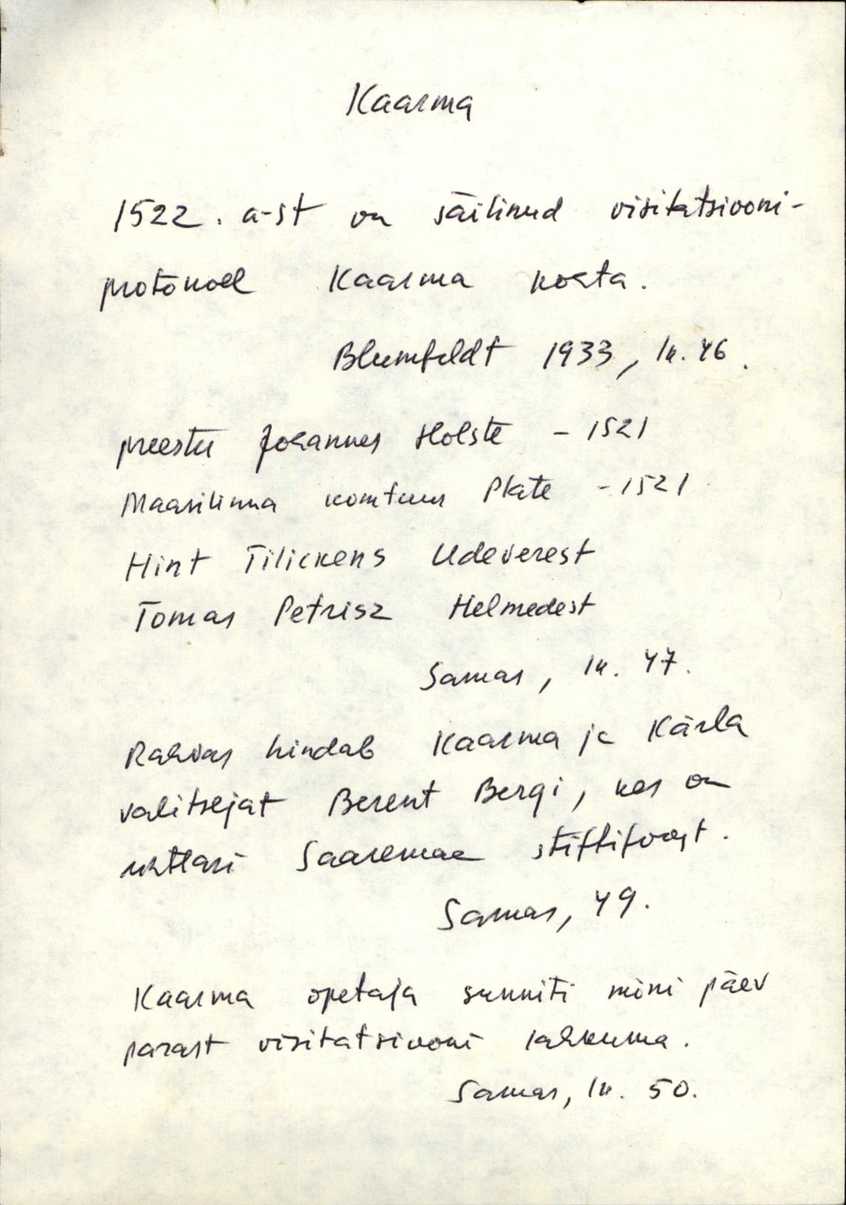 Kaarma
1522. a-st on säilinud visitatsiooni-
protokoll Kaarma kohta.
Blumfeldt 1933, lk. 46.
preester Johannes Holste - 1521
Maasilinna komtuur Plate - 1521
Hint Tilickens Udeverest
Tomas Petrisz Helmedest
Samas, lk. 47.
Rahvas hindab Kaarma ja Kärla
valitsejat Berent Bergi, kes on
ühtlasi Saaremaa stiftifoogt.
Samas, 49.
Kaarma õpetaja sunniti mõni päev
pärast visitatsiooni lahkuma.
Samas, lk. 50.